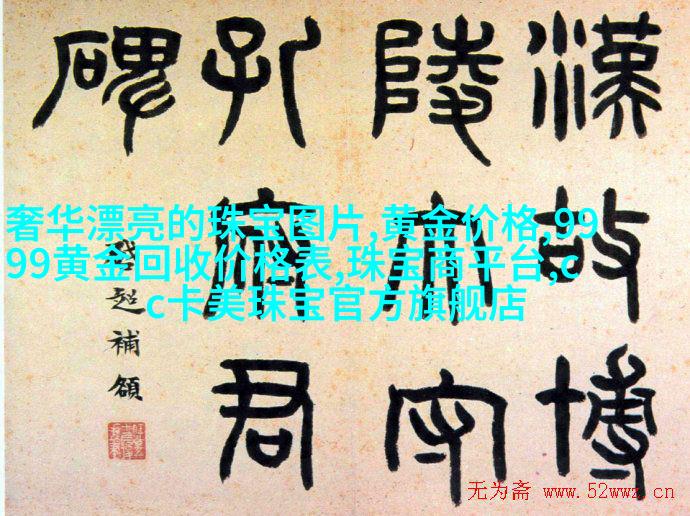 漢故博
陵太守
孔府君
碑
啓超補額
奢华漂亮的珠宝图片,黄金价格,99
99黄金回收价格表,珠宝商平台,c
c卡美珠宝官方旗舰店
无为斋 www.52wwz.cn